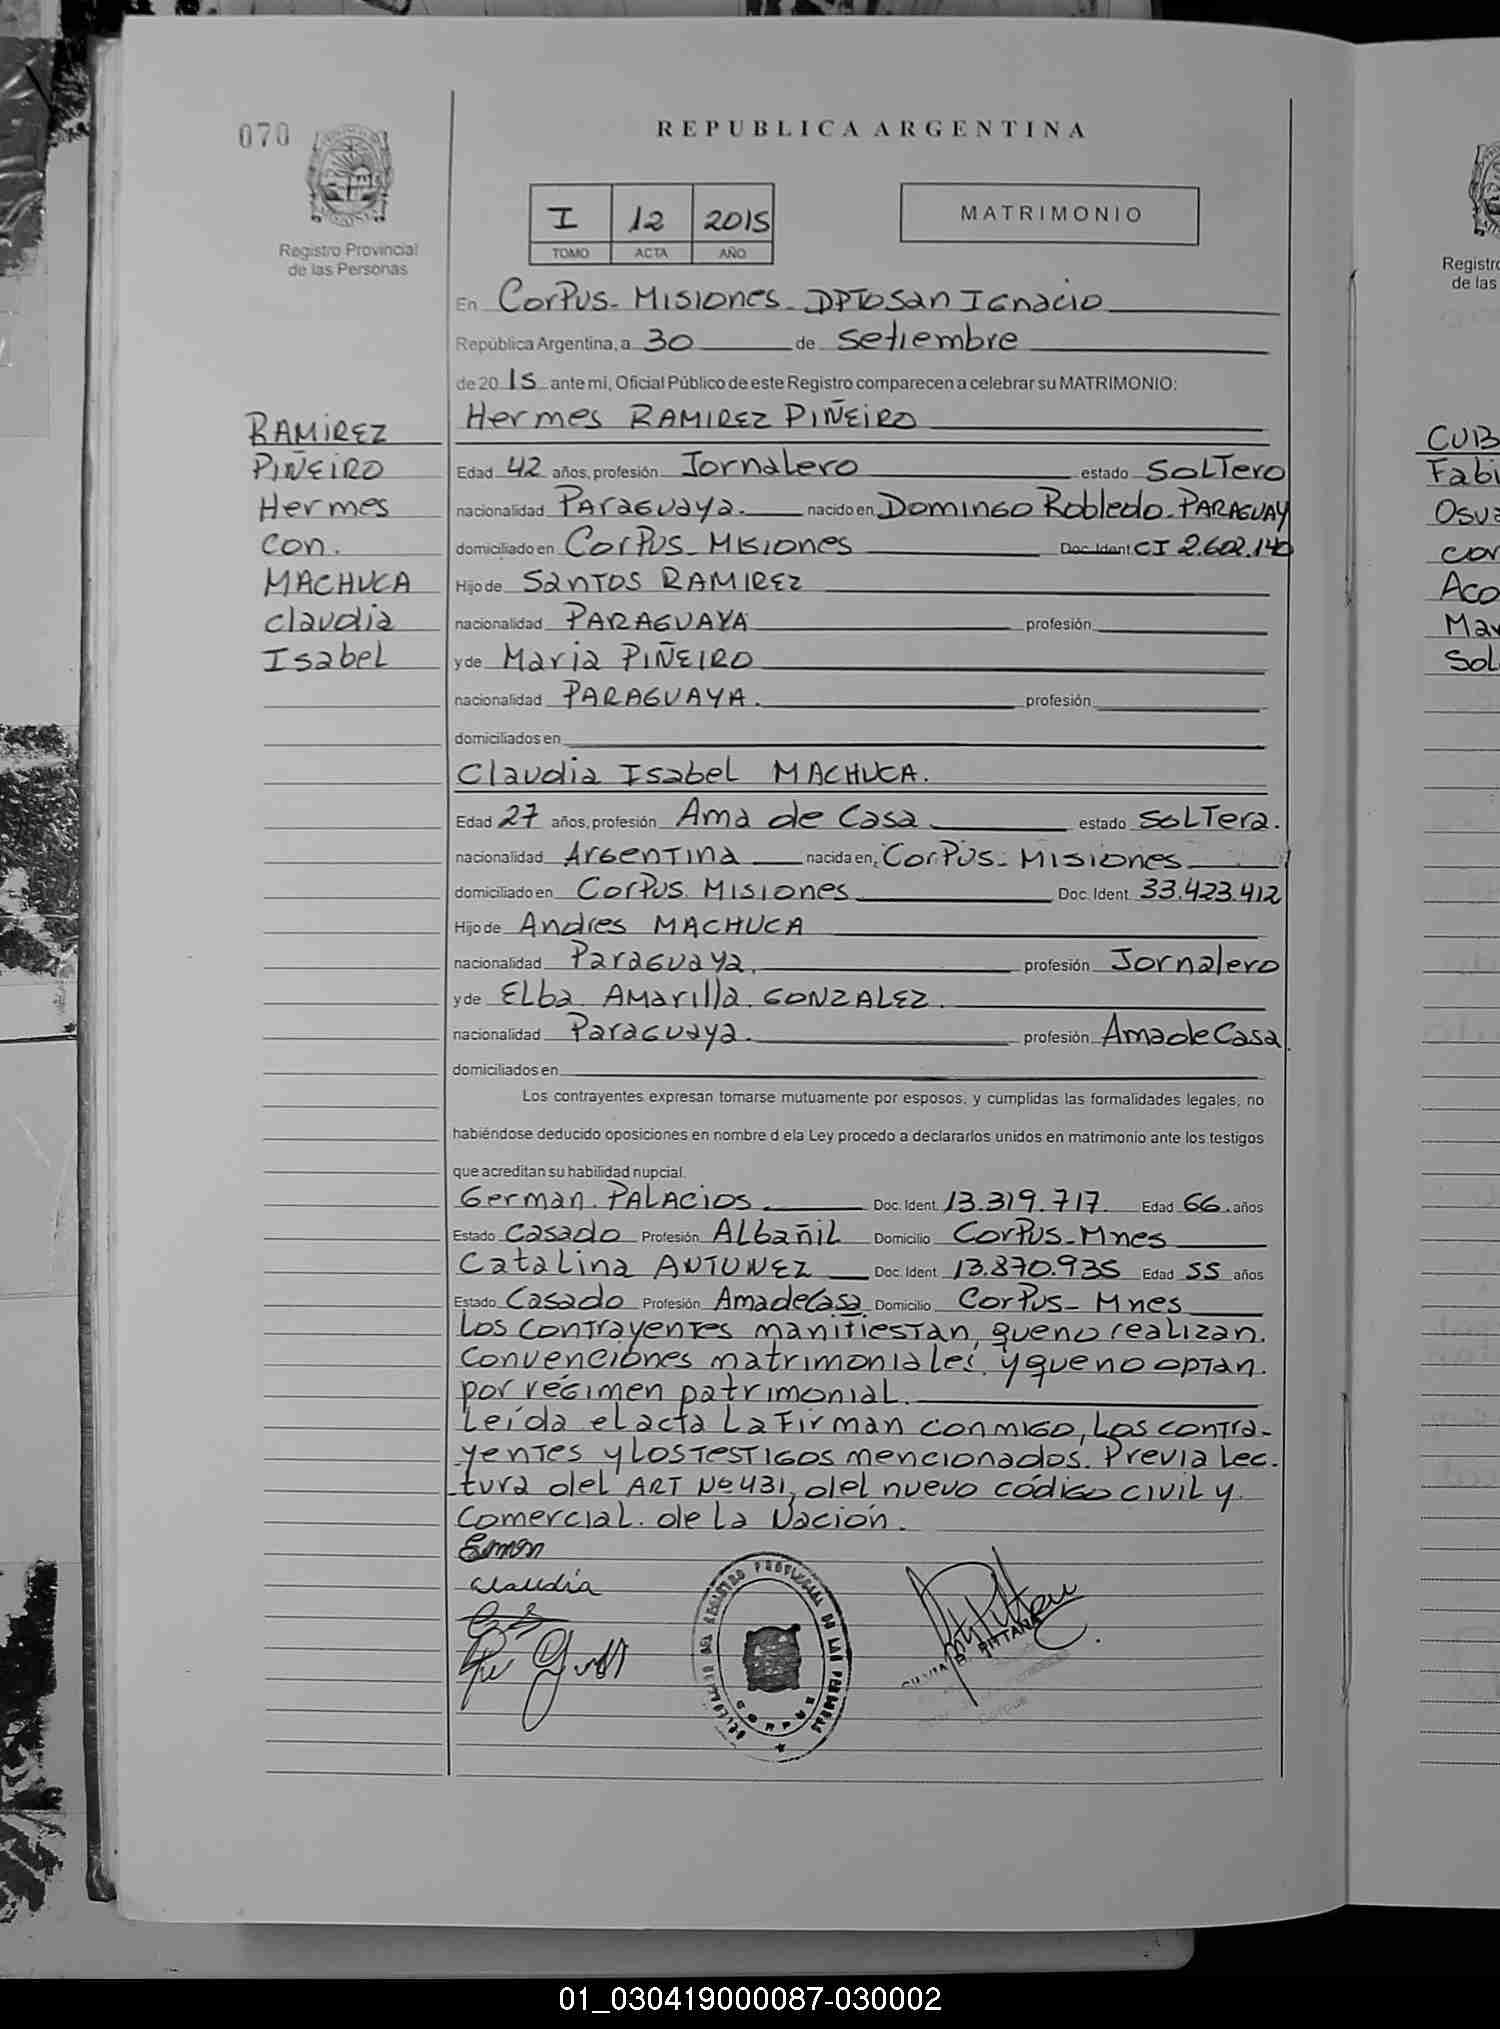 070
REPUBLICA ARGENTINA
I 12 2015
TOMO ACTA AÑO
MATRIMONIO
Registro Provincial
de las Personas
En Corpus - Misiones - DPTO San Ignacio
República Argentina, a 30 de Setiembre
de 20 15 ante mi, Oficial Público de este Registro comparecen a celebrar su MATRIMONIO:
RAMIREZ
PIÑEIRO
Hermes
con.
MACHUCA
Claudia
Isabel
Hermes RAMIREZ PIÑEIRO
Edad 42 años, profesión Jornalero estado SOLTero
nacionalidad Paraguaya. nacido en Domingo Robledo - PARAGUAY
domiciliado en Corpus - Misiones Doc. Ident. CI 2.602.140
Hijo de Santos RAMIREZ
nacionalidad PARAGUAYA profesión
y de Maria PIÑEIRO
nacionalidad PARAGUAYA. profesión
domiciliados en
Claudia Isabel MACHUCA.
Edad 27 años, profesión Ama de Casa estado SOLTera.
nacionalidad Argentina nacida en, Corpus - Misiones
domiciliado en Corpus Misiones Doc. Ident. 33.423.412
Hijo de Andres MACHUCA
nacionalidad Paraguaya. profesión Jornalero
y de Elba Amarilla GONZALEZ.
nacionalidad Paraguaya. profesión Ama de Casa.
domiciliados en
Los contrayentes expresan tomarse mutuamente por esposos, y cumplidas las formalidades legales, no
habiéndose deducido oposiciones en nombre d ela Ley procedo a declararlos unidos en matrimonio ante los testigos
que acreditan su habilidad nupcial.
German PALACIOS. Doc. Ident. 13.319.717. Edad 66 años
Estado Casado Profesión Albañil Domicilio Corpus - Mnes
Catalina ANTUNEZ Doc. Ident 13.870.935 Edad 55 años
Estado Casado Profesión Ama de Casa Domicilio Corpus - Mnes
Los contrayentes manifiestan, que no realizan.
Convenciones matrimoniales, y que no optan.
por régimen patrimonial.
Leída el acta La Firman conmigo, Los contra-
yentes y Los Testigos mencionados. Previa Lec-
tura del ART Nº 431, del nuevo código civil y
Comercial. de la Nación.
Claudia
DELEGACION DEL REGISTRO PROVINCIAL DE LAS PERSONAS
CORPUS
SILVIA B. PITTANA
Corpus
Registro
de las
CUB
Fabi
Osva
con
Aco
Mar
Sol
01_030419000087-030002